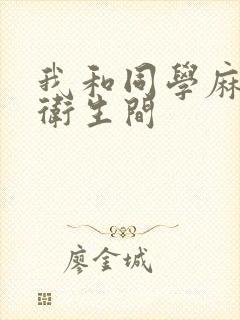 我和同學麻
衛生間
廖金城